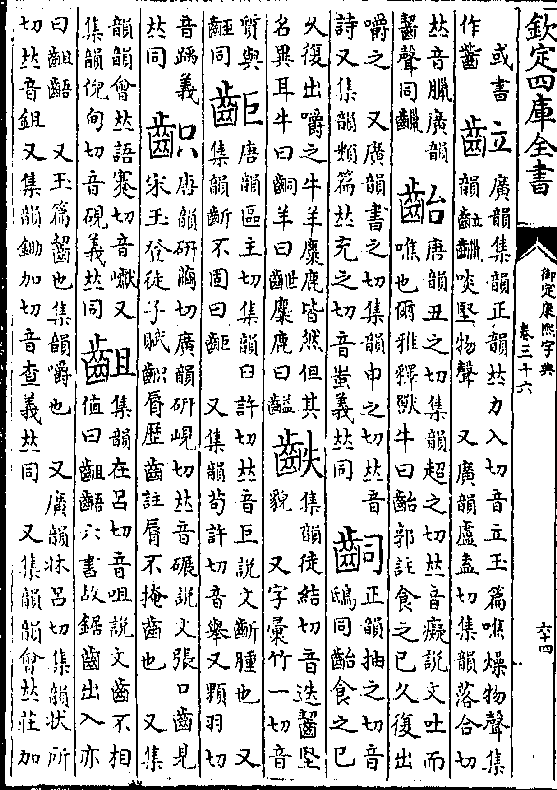 欽定四庫全書
御定康熙字典
卷三十六
六十四
或書作𪘚
𪗶 廣韻集韻正韻𠀤力入切音立玉篇噍燥物聲集韻齒𪙷啖堅物聲 又廣韻盧盍切集韻落合切
𠀤音臘廣韻齧聲同𪙷
齝 唐韻丑之切集韻超之切𠀤音癡說文吐而噍也爾雅釋獸牛曰齝郭註食之已久復出
嚼之 又廣韻書之切集韻申之切𠀤音詩又集韻類篇𠀤充之切音蚩義𠀤同
䶔 正韻抽之切音鴟同齝食之已
久復出嚼之牛羊麋鹿皆然但其名異耳牛曰䶔羊曰齛麋鹿曰齸
𪗨 集韻徒結切音迭齧堅貌 又字彙竹一切音
質與𪗻同
䶙 唐韻區主切集韻臼許切𠀤音巨說文齗腫也 又集韻齗不固曰䶙 又集韻苟許切音舉又顆羽切
音踽義𠀤同
齞 唐韻硏繭切廣韻硏峴切𠀤音碾說文張口齒見宋玉登徒子賦齞脣歷齒註脣不掩齒也 又集
韻韻會𠀤語蹇切音巘又集韻倪甸切音硯義𠀤同
齟 集韻在呂切音咀說文齒不相值曰齟齬六書故鋸齒出入亦
曰齟齬 又玉篇齧也集韻嚼也 又廣韻牀呂切集韻狀所切𠀤音鉏 又集韻鋤加切音查義𠀤同 又集韻韻會𠀤莊加